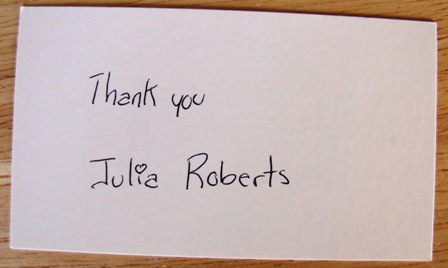 Thank you
Julia Roberts